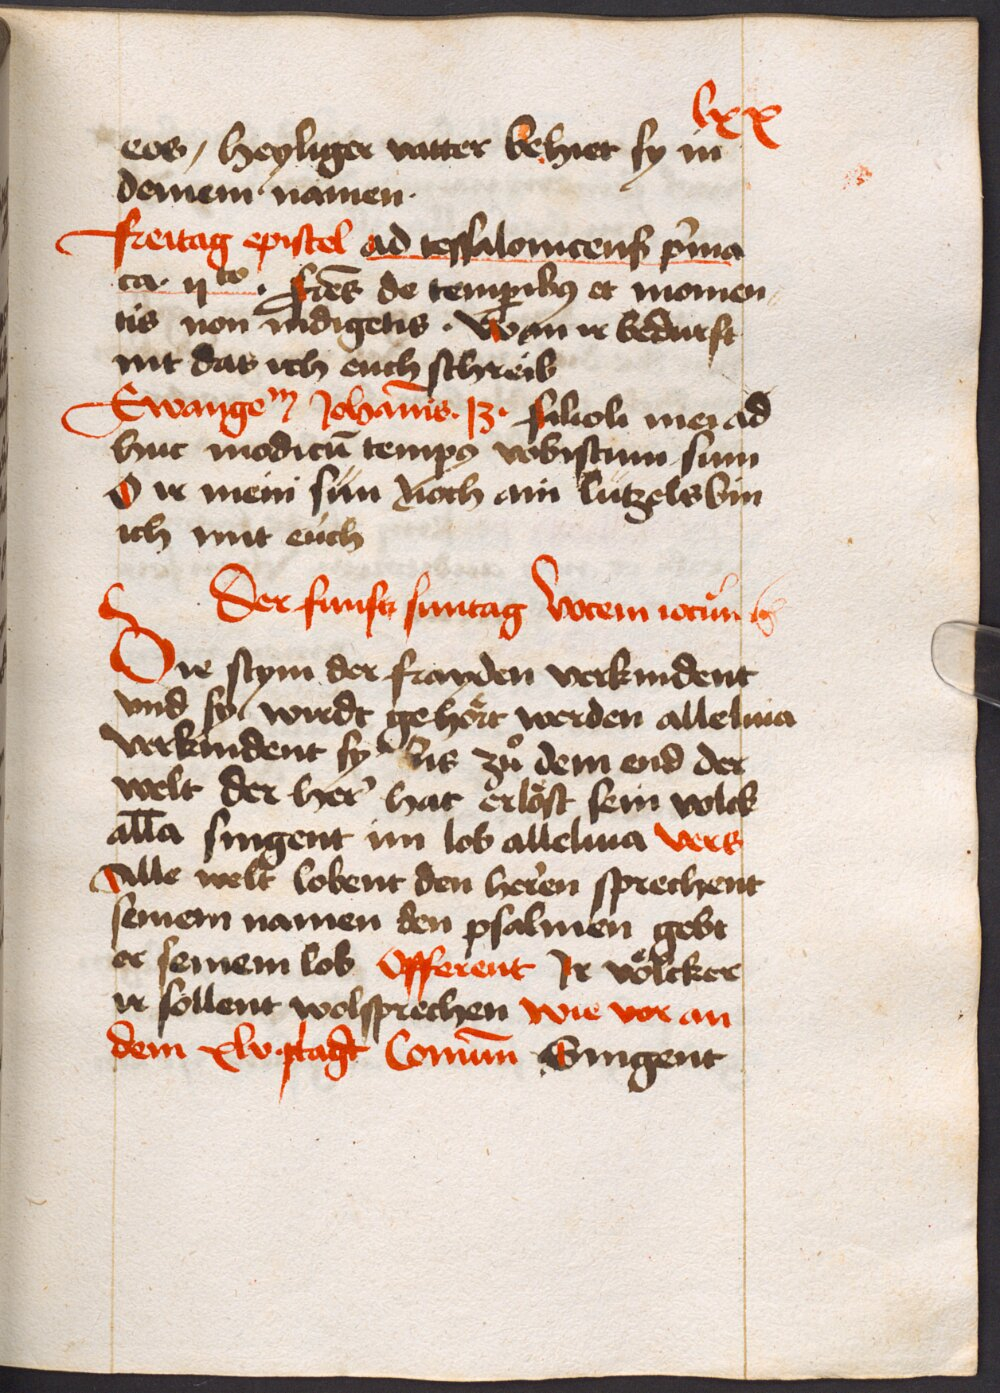 lxx
eos / heyliger vatter behiet sy in
deinem namen ·
Freitag epistel ad tessalonicenß p̄ma
ca · ijto · Fr̄es de temporibꝫ et momen
tis non indigetis · Wan ir bedurft
nit das ich euch schreib
Ewangem Johān̄is · 13 · filioli mei ad
huc modicū tempꝫ vobistum sum
O ir mein sün noch ain lützels bin
ich mit eüch
Der funft suntag Vocem iocun
Die stym der frayden verkindent
vnd sy wirdt gehört werden alleluia
verkindent sy bis zů dem end der
welt der her hat erlöst sein volck
alla singent im lob alleluia vers
Alle welt lobent den heren sprechent
seinem namen den psalmen gebt
er seinem lob Offerent Ir völcker
ir sollent wolsprechen wie vor an
dem xlv · plat Comūm Singent